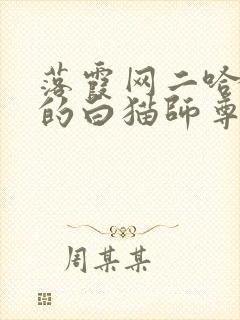 落霞网二哈
的白猫師尊
周某某